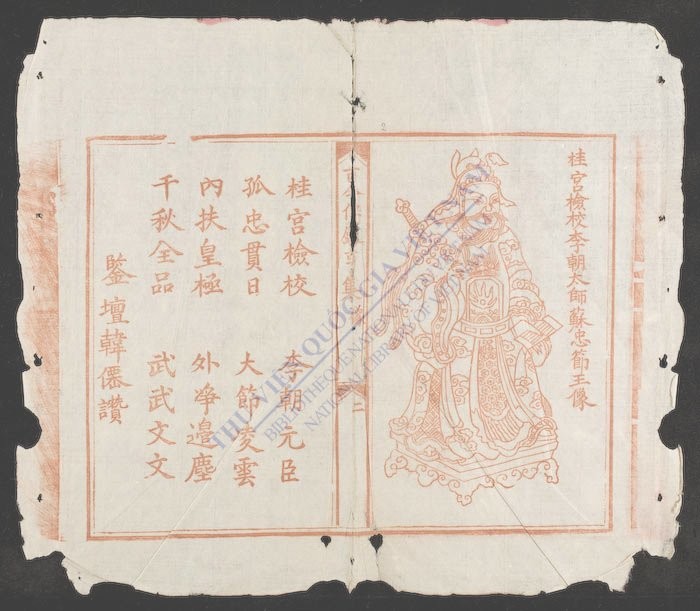 桂宮檢校李朝太師蘇忠節王像
二
桂宮檢校 李朝元臣
孤忠貫日 大節凌雲
內扶皇極 外淨邉塵
千秋全品 武武文文
鑒壇韓僊讚
2
THƯ VIỆN QUỐC GIA VIỆT NAM
BIBLIOTHEQUE NATIONALE DU VIETNAM
NATIONAL LIBRARY OF VIETNAM